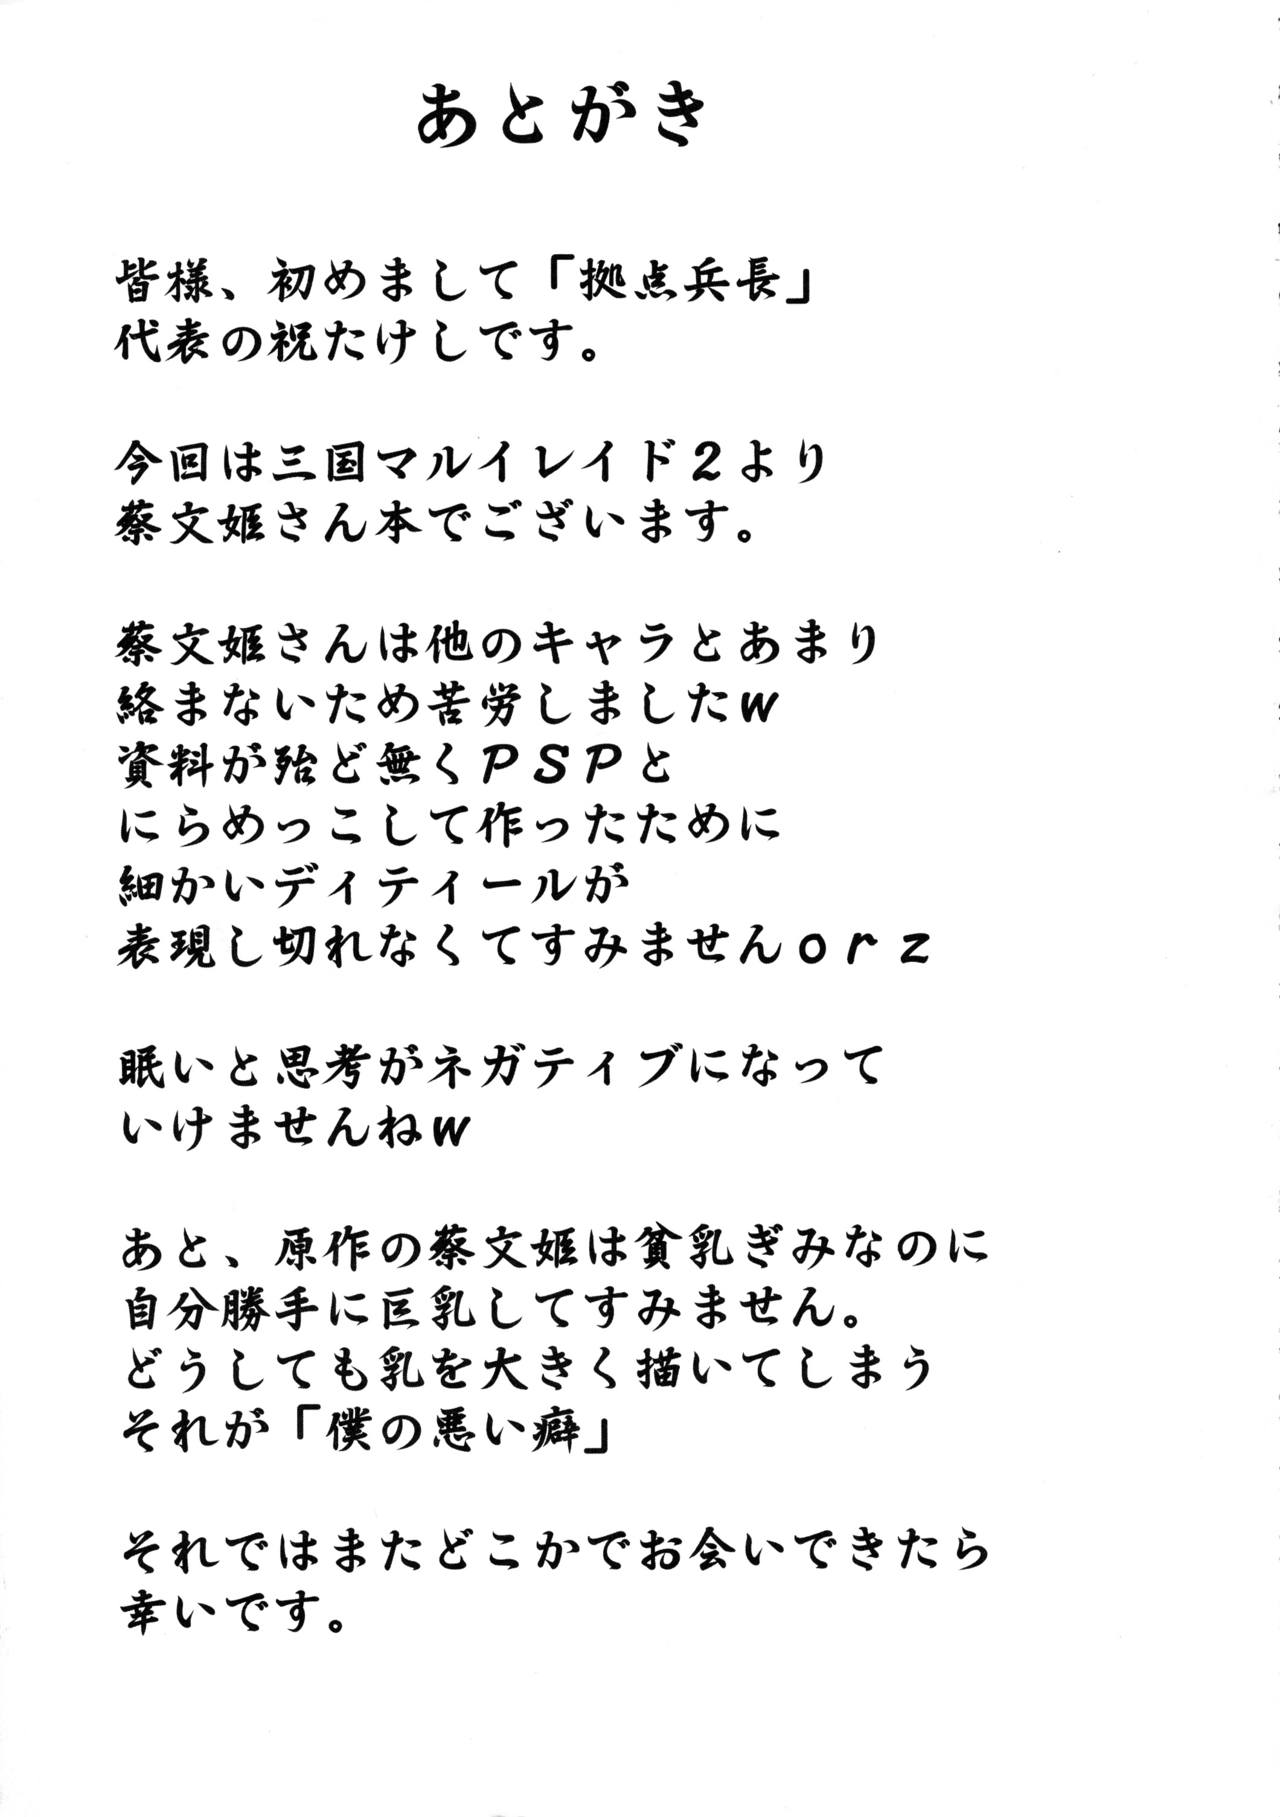 あとがき
皆様、初めまして「拠点兵長」
代表の祝たけしです。
今回は三国マルイレイド２より
蔡文姫さん本でございます。
蔡文姫さんは他のキャラとあまり
絡まないため苦労しましたｗ
資料が殆ど無くＰＳＰと
にらめっこして作ったために
細かいディティールが
表現し切れなくてすみませんｏｒｚ
眠いと思考がネガティブになって
いけませんねｗ
あと、原作の蔡文姫は貧乳ぎみなのに
自分勝手に巨乳してすみません。
どうしても乳を大きく描いてしまう
それが「僕の悪い癖」
それではまたどこかでお会いできたら
幸いです。